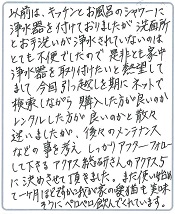 以前は、キッチンとお風呂のシャワーに
浄水器を付けておりましたが、洗面所
とお手洗いが浄水されていないのは
とても不便でしたので、是非とも家中
浄水器を取り付けたいと熱望して
まして、今回引っ越しを期にネットで
検索しながら購入した方が良いのか
レンタルした方が良いのかと散々
迷いましたが、後々のメンテナンス
などの事を考え、しっかりアフターフォロー
して下さるアクアス総研さんのアクアス5
に決めさせて頂きました。まだ使い始め
て一ヶ月ほどですが我が家の愛猫も美味し
そうにペロペロ飲んでくれています。